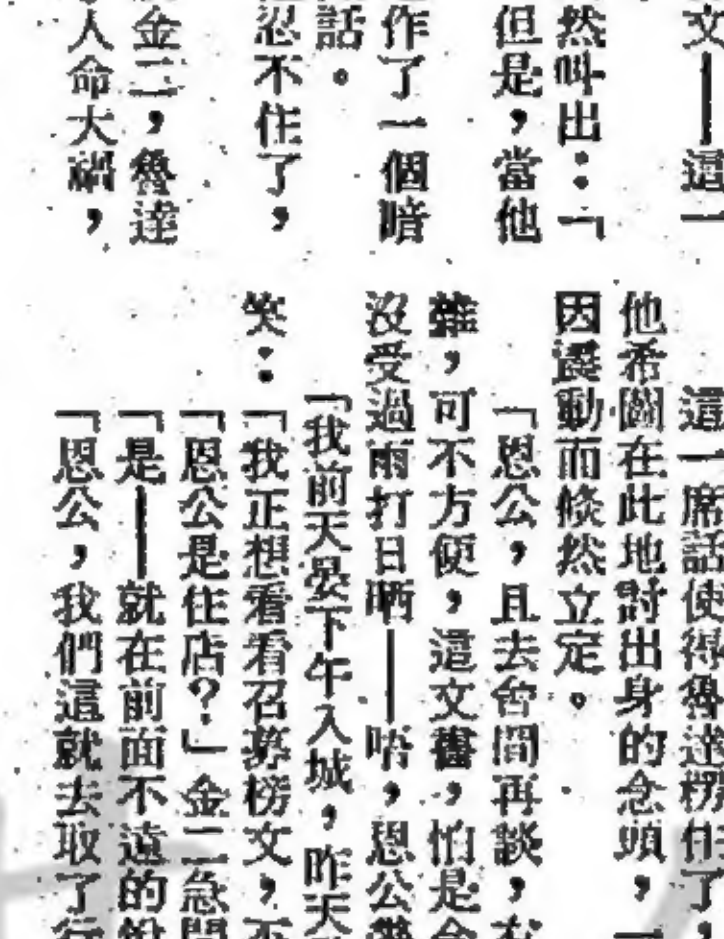 文——這一
然叫出：「
但是，當他
作了一個暗
話。
忍不住了，
金二，魯達
人命大禍，
這一席話使得魯達楞住了，
他希圖在此地討出身的念頭，
因震動而倏然立定。
「恩公，且去舍間再談，
雜，可不方便，這文書，怕是
沒受過雨打日晒——唔，恩公
「我前天晏下午入城，昨天
笑：「我正想看看召募榜文，
「恩公是住店？」金二急問
「是——就在前面不遠的
「恩公，我們這就去取了行